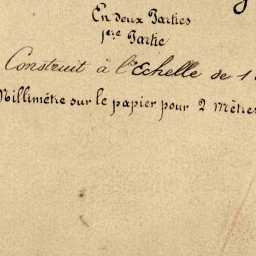 En deux Parties
1ère Partie
Construit à l'Echelle de 1
Millimètre sur le papier pour 2 Mètres